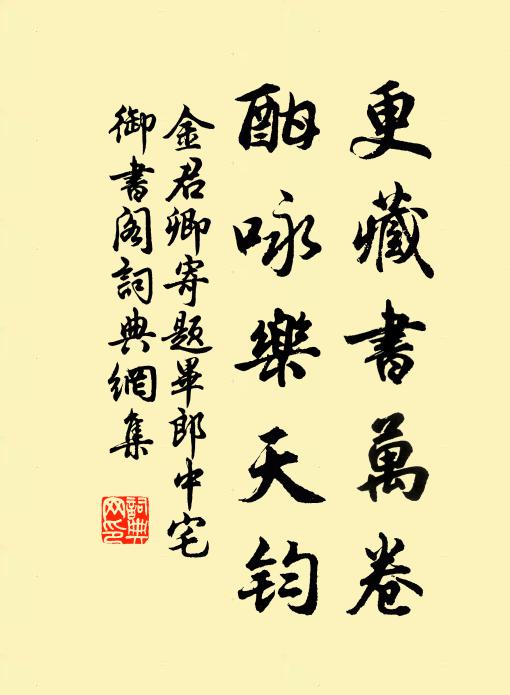 更藏書萬卷
酣咏樂天鈞
金君卿寄題畢郎中宅
御書閣詞典網集
詞典網印